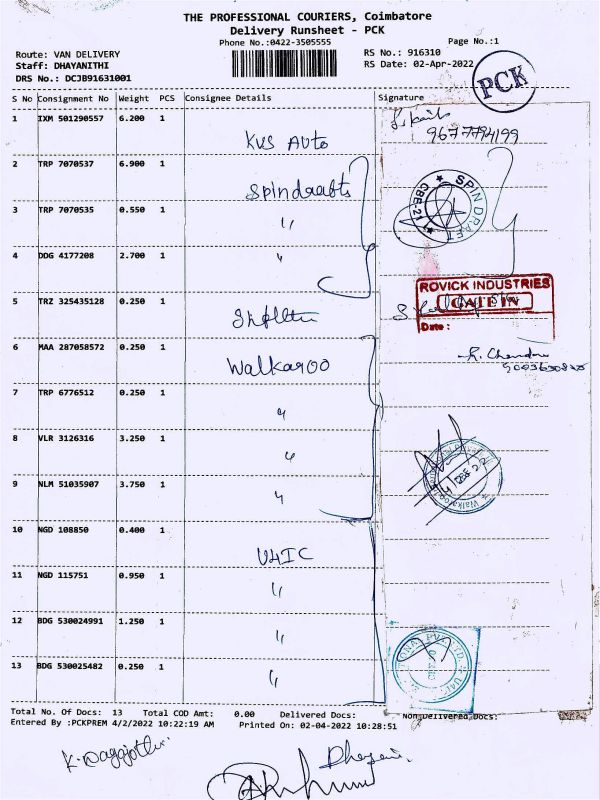 THE PROFESSIONAL COURIERS, Coimbatore
Delivery Runsheet - PCK
Phone No.:0422-3505555
Page No.:1
Route: VAN DELIVERY
RS No.: 916310
Staff: DHAYANITHI
RS Date: 02-Apr-2022
DRS No.: DCJB91631001
PCK
S No Consignment No Weight PCS Consignee Details Signature
1 IXM 501290557 6.200 1
KVS Auto
9677794199
2 TRP 7070537 6.900 1
Spindrafts
SPIN DRAFT
CBE-21
3 TRP 7070535 0.550 1
"
4 DDG 4177208 2.700 1
"
ROVICK INDUSTRIES
GATE IN
Date :
5 TRZ 325435128 0.250 1
6 MAA 287058572 0.250 1
Walkaroo
R. Chandru
7 TRP 6776512 0.250 1
"
8 VLR 3126316 3.250 1
"
9 NLM 51035907 3.750 1
"
10 NGD 108850 0.400 1
U4IC
11 NGD 115751 0.950 1
"
12 BDG 530024991 1.250 1
"
13 BDG 530025482 0.250 1
"
Total No. Of Docs: 13 Total COD Amt: 0.00 Delivered Docs: Non Delivered Docs:
Entered By :PCKPREM 4/2/2022 10:22:19 AM Printed On: 02-04-2022 10:28:51